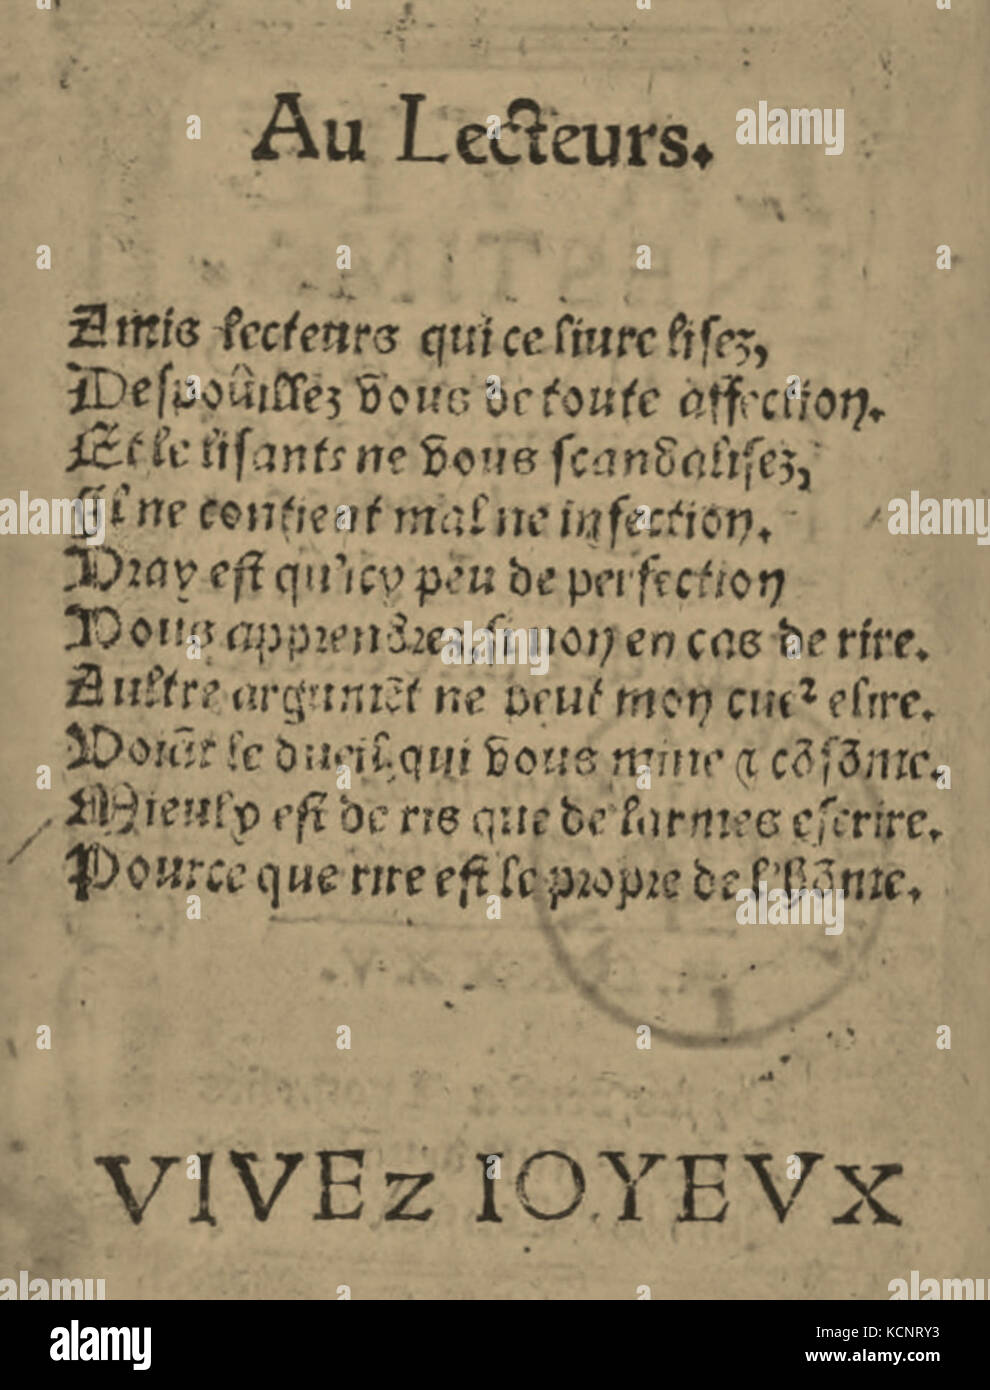 Au Lecteurs.
Amis lecteurs qui ce liure lisez,
Despouillez vous de toute affection.
Et le lisants ne vous scandalisez,
Il ne contient mal ne infection.
Vray est qu'icy peu de perfection
Vous apprendrez, si non en cas de rire.
Aultre argumēt ne peut mon cueꝛ elire.
Voiāt le dueil, qui vous mine & cōsōme.
Mieulx est de ris que de larmes escrire.
Pource que rire est le propre de l'hōme.
VIVEZ IOYEVX
alamy
Image ID: KCNRY3
www.alamy.com